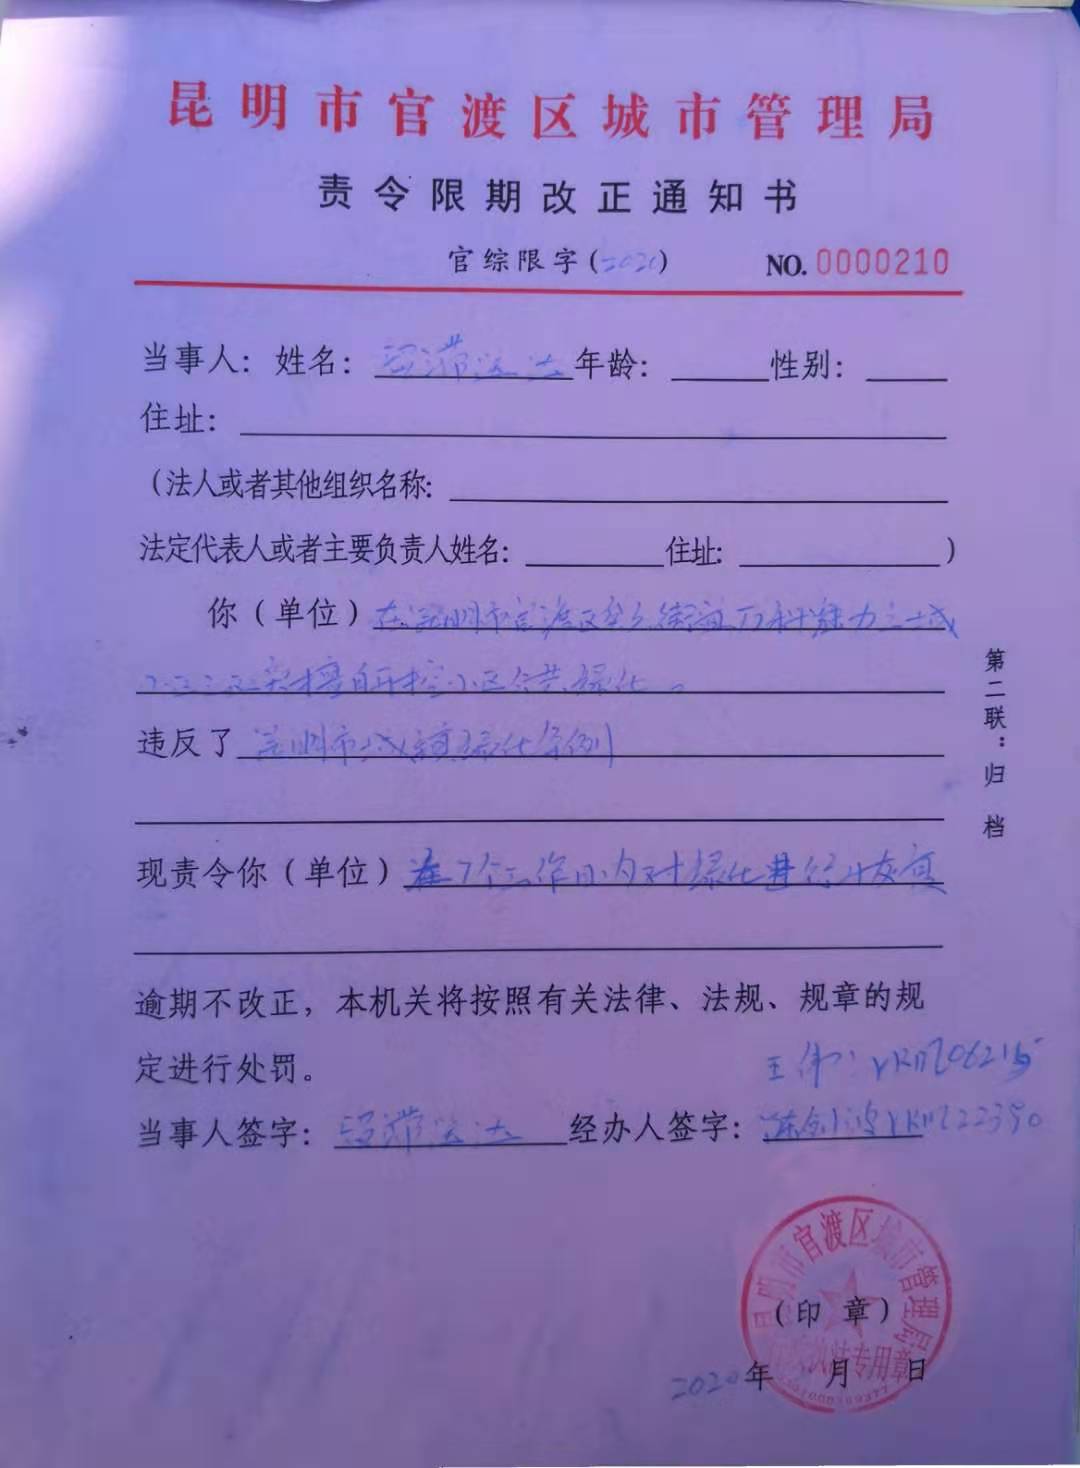 昆明市官渡区城市管理局
责令限期改正通知书
官综限字(2020) NO. 0000210
当事人：姓名： 年龄： 性别：
住址：
（法人或者其他组织名称：
法定代表人或者主要负责人姓名： 住址： ）
你（单位）在昆明市官渡区 街道万科魅力之城
擅自 小区公共绿化。
违反了 昆明市城镇绿化条例
现责令你（单位）在7个工作日内对绿化进行恢复
逾期不改正，本机关将按照有关法律、法规、规章的规
定进行处罚。
王伟：
当事人签字： 经办人签字：
（印章）
2020年 月 日
第二联：归档
昆明市官渡区城市管理局
专用章